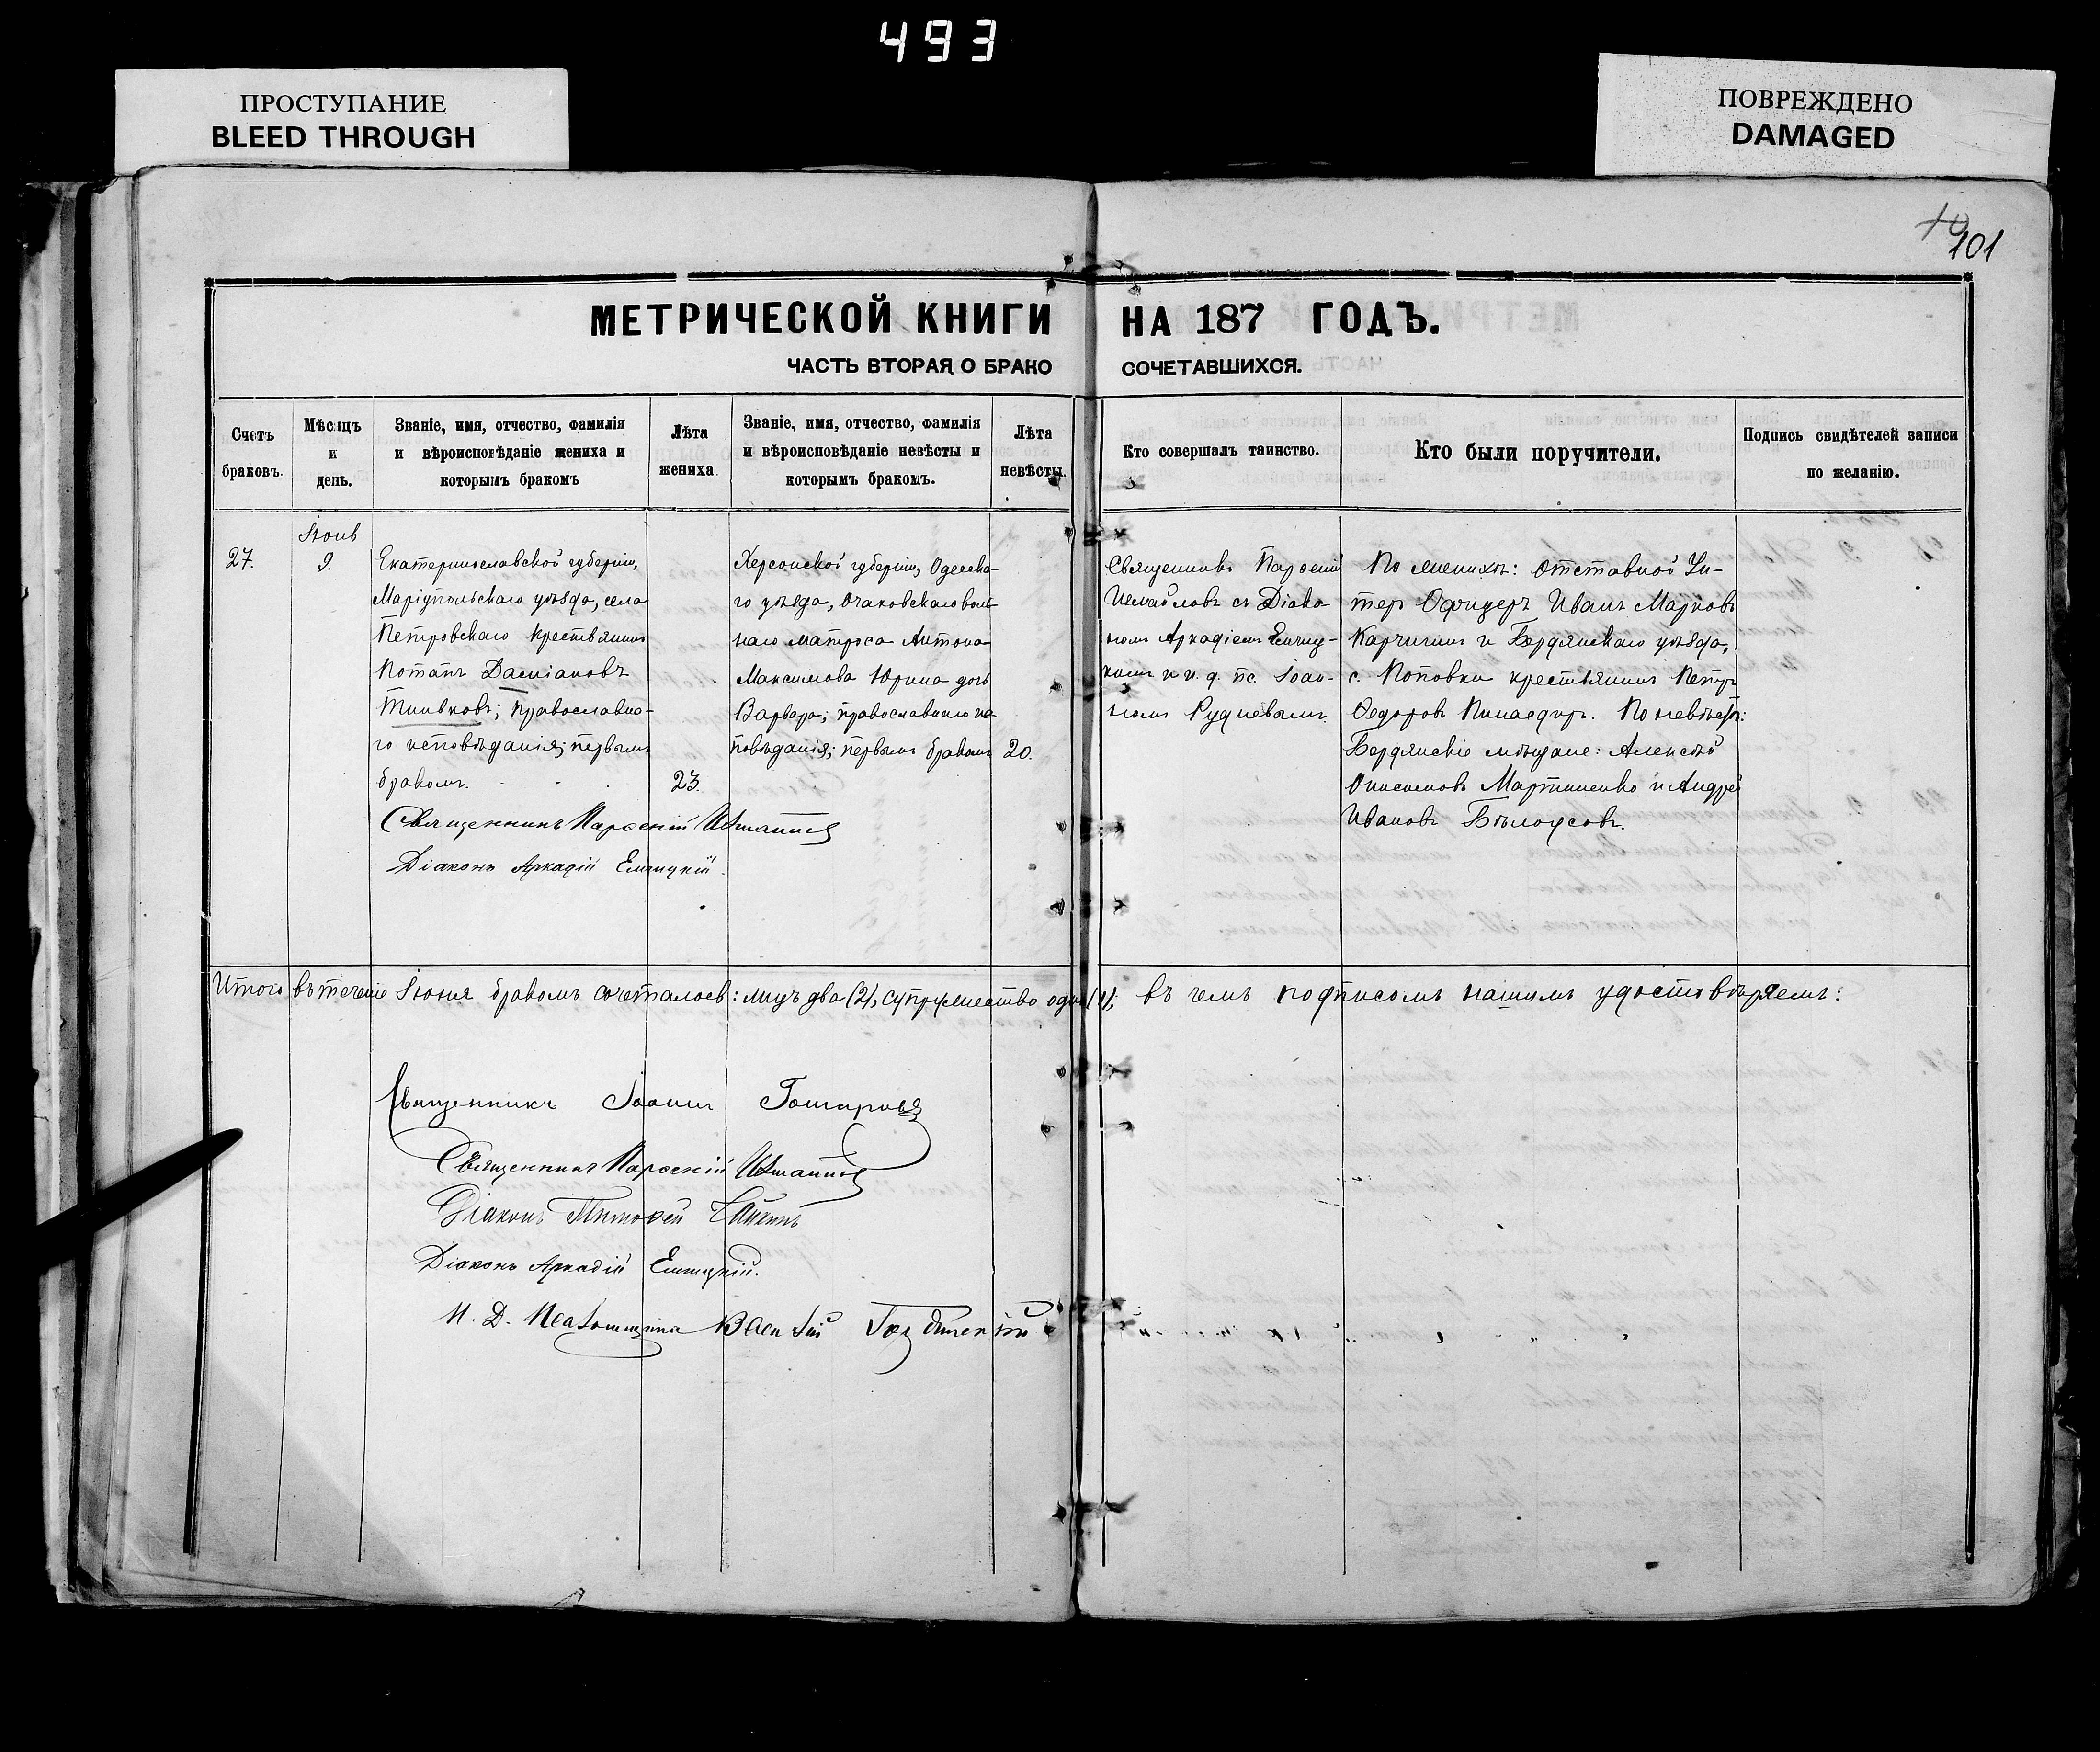 493
ПРОСТУПАНИЕ
BLEED THROUGH
ПОВРЕЖДЕНО
DAMAGED
101
МЕТРИЧЕСКОЙ КНИГИ НА 187 ГОДЪ.
ЧАСТЬ ВТОРАЯ О БРАКО СОЧЕТАВШИХСЯ.
Счетъ
браковъ.
Мѣсяцъ
и
день.
Званіе, имя, отчество, фамилія
и вѣроисповѣданіе жениха и
которымъ бракомъ
Лѣта
жениха.
Званіе, имя, отчество, фамилія
и вѣроисповѣданіе невѣсты и
которымъ бракомъ.
Лѣта
невѣсты.
Кто совершалъ таинство.
Кто были поручители.
Подпись свидѣтелей записи
по желанію.
27.
Іюнь
9.
Екатеринославской губерніи,
Маріупольскаго уѣзда, села
Петровскаго крестьянинъ
Потапъ Даміановъ
православна-
го исповѣданія; первымъ
бракомъ.
23.
Херсонской губерніи, Одесска-
го уѣзда, Очаковскаго воль-
наго матроса Антона
Максимова Юрина дочь
Варвара; православнаго ис
повѣданія; первымъ бракомъ
20.
Священникъ Парѳеній
Измайловъ съ Діако
номъ Аркадіемъ
и и. д. пс. Іоан-
номъ Рудневымъ.
По женихѣ: отставной Ун-
теръ Офицеръ Иванъ Марковъ
Карчигинъ и Бердянскаго уѣзда,
с. Поповки крестьянинъ Петръ
Ѳедоровъ По невѣстѣ:
Бердянскіе мѣщане: Алексѣй
Онисимовъ Мартыненко и Андрей
Ивановъ Бѣлоусовъ.
Священникъ Парѳеній Измайловъ
Діаконъ Аркадій
Итого въ теченіе Іюня бракомъ сочеталось: лицъ два (2), супружество одно (1); въ чемъ подписомъ нашимъ удостовѣряемъ:
Священникъ Іоаннъ Гончаровъ
Священникъ Парѳеній Измайловъ
Діаконъ Тимоѳей
Діаконъ Аркадій
И. Д. Псаломщика